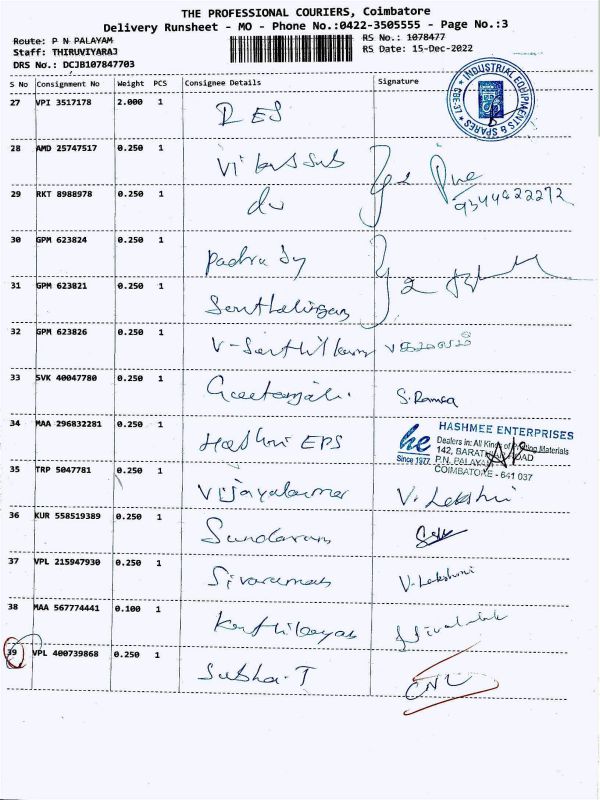 THE PROFESSIONAL COURIERS, Coimbatore
Delivery Runsheet - MO - Phone No.:0422-3505555 - Page No.:3
Route: P N PALAYAM RS No.: 1078477
Staff: THIRUVIYARAJ RS Date: 15-Dec-2022
DRS No.: DCJB107847703
S No Consignment No Weight PCS Consignee Details Signature
27 VPI 3517178 2.000 1 RES
INDUSTRIAL EQUIPMENTS & SPARES CBE-37
28 AMD 25747517 0.250 1
9344822272
29 RKT 8988978 0.250 1 do
30 GPM 623824 0.250 1
31 GPM 623821 0.250 1 Senthalingam
32 GPM 623826 0.250 1 V-Senthilkumar
33 SVK 40047780 0.250 1 Geetanjali S. Ramea
34 MAA 296832281 0.250 1 Hashmi EPS
HASHMEE ENTERPRISES
he Dealers in: All Kinds of Printing Materials
142, BARATHIAR ROAD
Since 1977 P.N. PALAYAM
COIMBATORE - 641 037
35 TRP 5047781 0.250 1 Vijayakumar V. Lekshmi
36 KUR 558519389 0.250 1 Sundaram
37 VPL 215947930 0.250 1 Sivaraman V. Lekshmi
38 MAA 567774441 0.100 1
39 VPL 400739868 0.250 1 Subha-T CNL